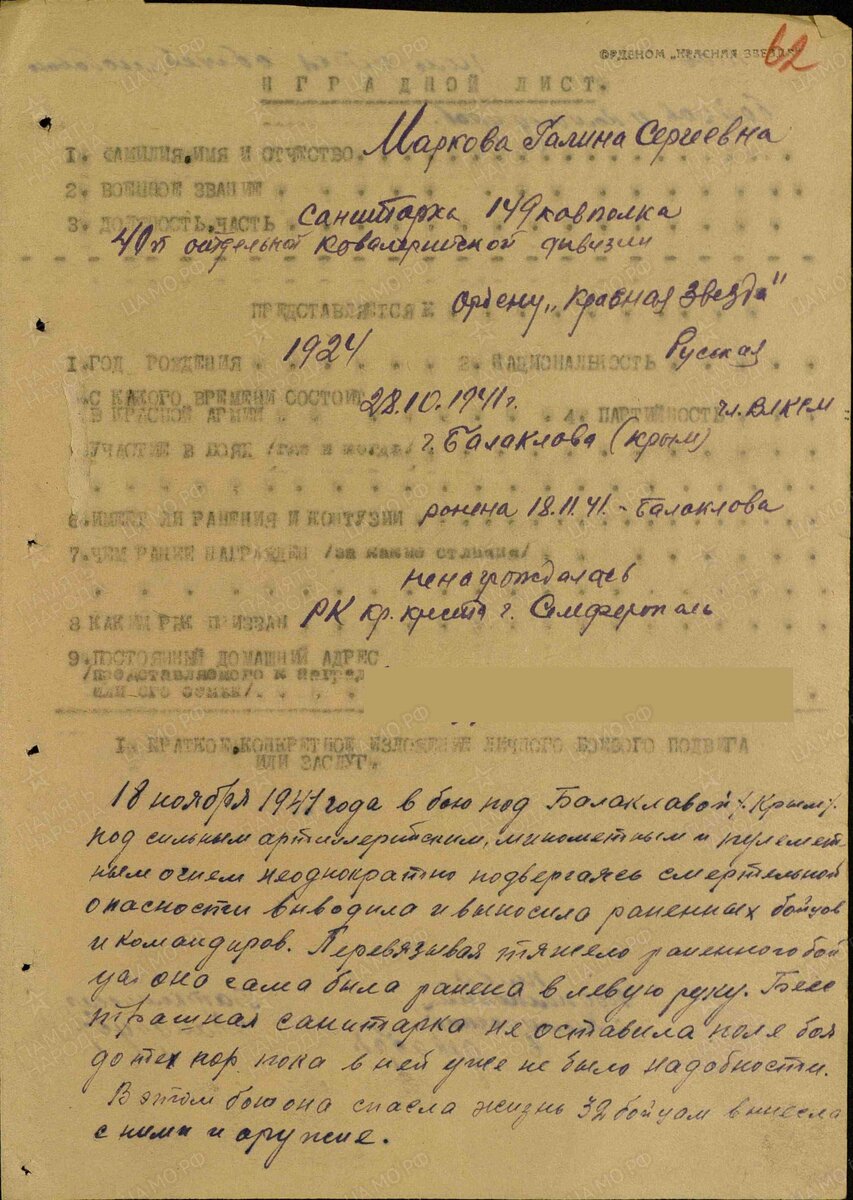 ОРДЕНОМ „КРАСНАЯ ЗВЕЗДА"
62
НГРАДНОЙ ЛИСТ.
1. ФАМИЛИЯ, ИМЯ И ОТЧЕСТВО. Маркова Галина Сергеевна
2. ВОЕННОЕ ЗВАНИЕ
3. ДОЛЖНОСТЬ, ЧАСТЬ санитарка 149 кавполка
40й отдельной кавалерийской дивизии
ПРЕДСТАВЛЯЕТСЯ К ордену „Красная Звезда"
1. ГОД РОЖДЕНИЯ 1924 2. НАЦИОНАЛЬНОСТЬ Русская
С КАКОГО ВРЕМЕНИ СОСТОИТ
В КРАСНОЙ АРМИИ 28.10.1941г. 4. ПАРТИЙНОСТЬ чл. ВЛКСМ
УЧАСТИЕ В БОЯХ /где и когда/ г. Балаклава (Крым)
6. ИМЕЕТ ЛИ РАНЕНИЯ И КОНТУЗИИ ранена 18.11.41. - Балаклава
7. ЧЕМ РАНЕЕ НАГРАЖДЕН /за какие отличия/
не награждалась
8 КАКИМ РВК ПРИЗВАН РК кр. креста г. Симферополь
9. ПОСТОЯННЫЙ ДОМАШНИЙ АДРЕС
/представляемого к наград
или его семьи/.
1. КРАТКОЕ, КОНКРЕТНОЕ ИЗЛОЖЕНИЕ ЛИЧНОГО БОЕВОГО ПОДВИГА
ИЛИ ЗАСЛУГ.
18 ноября 1941 года в бою под Балаклавой /Крым/.
под сильным артиллерийским, минометным и пулемет-
ным огнем неоднократно подвергаясь смертельной
опасности выводила и выносила раненных бойцов
и командиров. Перевязывая тяжело раненного бой
ца она сама была ранена в левую руку. Бесс
трашная санитарка не оставила поле боя
до тех пор пока в ней уже не было надобности.
В этом бою она спасла жизнь 32 бойцам вынесла
с ними и оружие.
ЦАМО.РФ